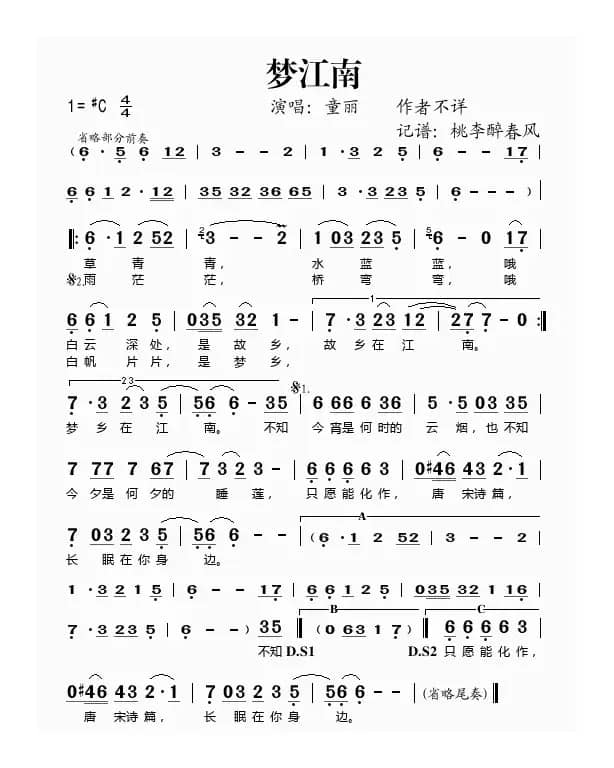 梦江南
1=♯C 4/4 演唱：童丽 作者不详
记谱：桃李醉春风
省略部分前奏
(6·5 6 12 | 3 - - 2 | 1·3 2 5 | 6 - - 17 |
6 6 1 2·12 | 35 32 36 65 | 3·3 23 5 | 6 - - ) |
‖: 6·1 2 52 | 3 - - 2 | 1 03 23 5 | 6 - 0 17 |
草 青 青， 水 蓝 蓝， 哦
2.雨 茫 茫， 桥 弯 弯， 哦
6 6 1 2 5 | 035 32 1 - | 1. 7·3 23 12 | 27 7 - 0 :‖
白云 深处， 是 故 乡， 故 乡在江 南。
白帆 片片， 是 梦 乡，
2 3 𝄋1.
7·3 23 5 | 56 6 - 35 | 6 66 6 36 | 5·5 03 35 |
梦 乡在江 南。 不知 今宵是何时的 云 烟，也不知
7 77 7 67 | 7 3 2 3 - | 6 6 6 6 3 | 0♯46 43 2·1 |
今夕是何夕的 睡 莲， 只愿能化作， 唐 宋诗篇，
A
7 03 23 5 | 56 6 - - | (6·1 2 52 | 3 - - 2 |
长 眠在你身 边。
1·3 2 1 5 | 6 - - 17 | 6 6 1 2 5 | 035 32 1 16 |
B C
7·3 23 5 | 6 - - ) 35 ‖ (0 63 1 7) ‖ 6 6 6 6 3 |
不知 D.S1 D.S2 只愿能化作，
0♯46 43 2·1 | 7 03 23 5 | 56 6 - - | (省略尾奏) ‖
唐 宋诗篇， 长 眠在你身 边。